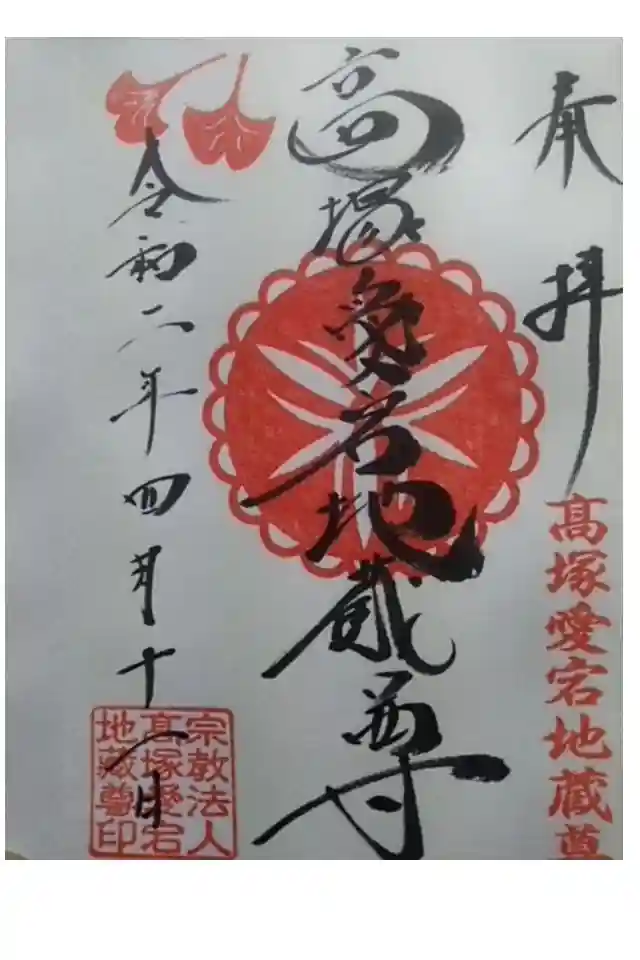 奉拝
髙塚愛宕地蔵尊
高塚愛宕地蔵尊
令和六年四月十一日
宗教法人
髙塚愛宕
地蔵尊印